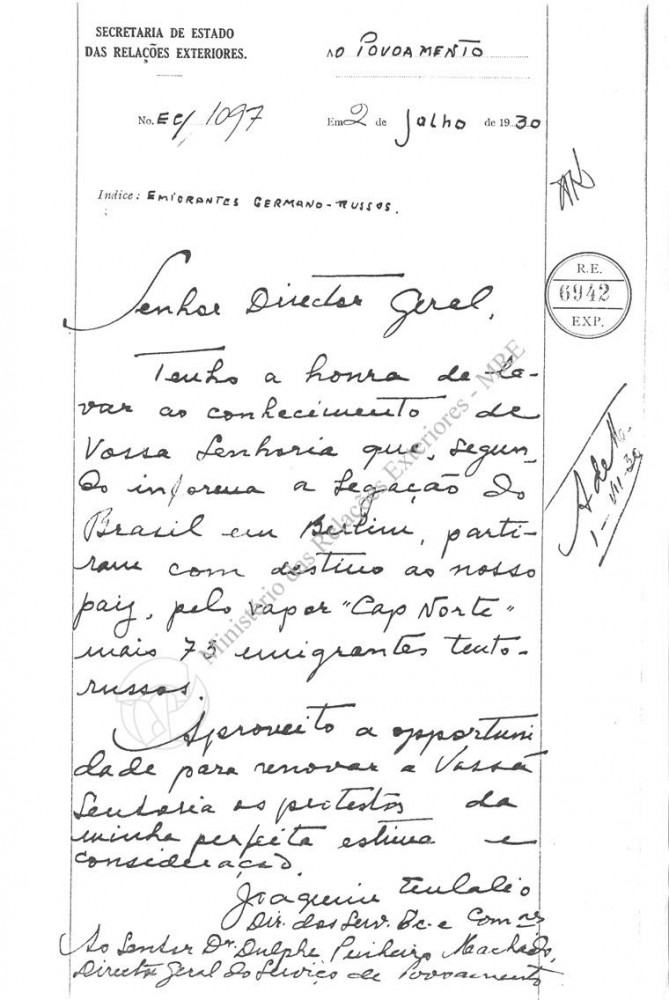 SECRETARIA DE ESTADO
DAS RELAÇÕES EXTERIORES.
AO POVOAMENTO
No. EC/1097
Em 2 de Julho de 1930
Indice: EMIGRANTES GERMANO-RUSSOS.
R.E.
6942
EXP.
Senhor Director Geral,
Tenho a honra de le-
var ao conhecimento de
Vossa Senhoria que, segun-
do informa a Legação do
Brasil em Berlim, parti-
ram com destino ao nosso
paiz, pelo vapor "Cap Norte"
mais 73 emigrantes teuto-
russos.
Aproveito a opportuni
dade para renovar a Vossa
Senhoria os protestos da
minha perfeita estima e
consideração.
Joaquim Eulalio
Dir. dos Serv. Ec. e Com.es
Ao Senhor Dr. Dulphe Pinheiro Machado,
Director Geral do Serviço de Povoamento
1-VII-30
Ministério das Relações Exteriores - MRE